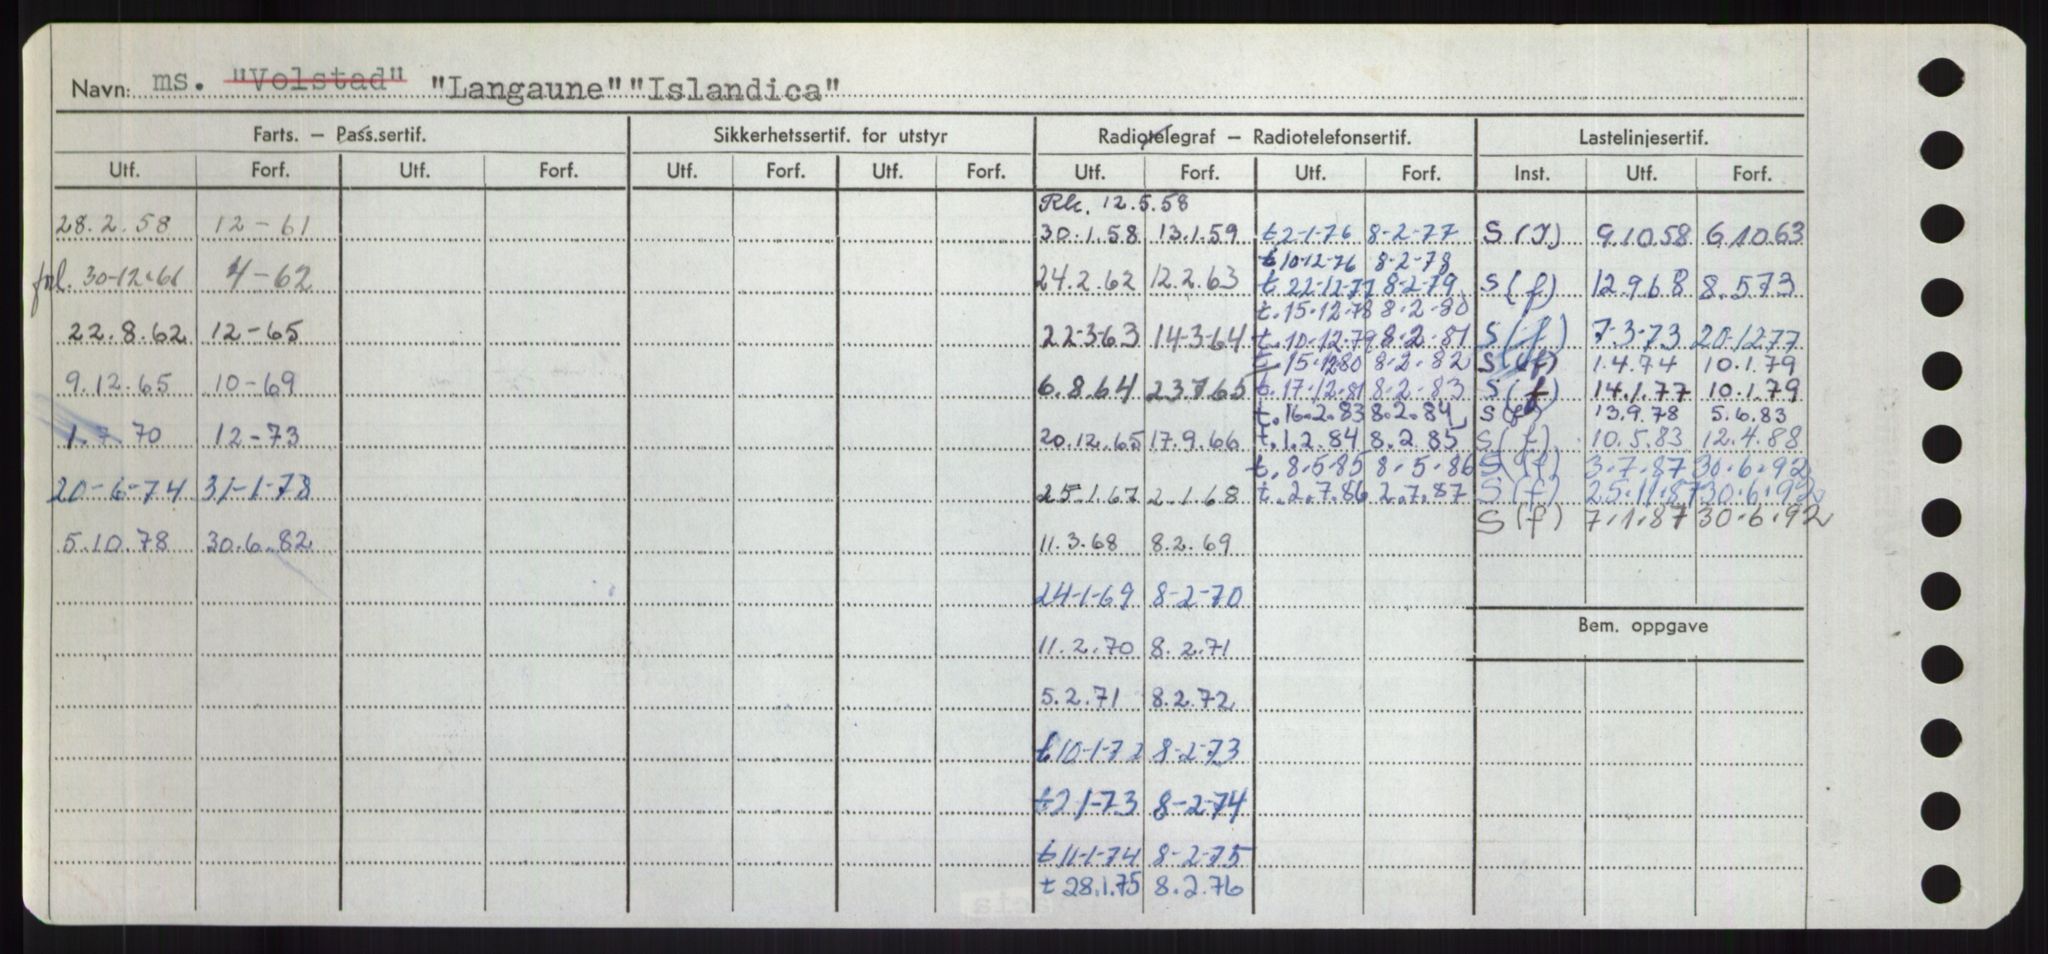 Navn: ms. "Volstad" "Langaune" "Islandica"
Farts. – Pass.sertif. Sikkerhetssertif. for utstyr Radiotelegraf – Radiotelefonsertif. Lastelinjesertif.
Utf. Forf. Utf. Forf. Utf. Forf. Utf. Forf. Utf. Forf. Utf. Forf. Inst. Utf. Forf.
Rk. 12.5.58
28.2.58 12-61 30.1.58 13.1.59 t 2-1-76 8-2-77 S (I) 9.10.58 6.10.63
t 10-12-76 8-2-78
forl. 30-12-61 4-62 24.2.62 12.2.63 t. 22-12-77 8-2-79 S (f) 12.9.68 8.5.73
t. 15-12-78 8-2-80
22.8.62 12-65 22-3-63 14-3-64 t. 10-12-79 8-2-81 S (f) 7-3-73 20.12.77
t. 15-12-80 8-2-82 S (f) 1.4.74 10.1.79
9.12.65 10-69 6.8.64 23.7.65 t. 17-12-81 8-2-83 S (f) 14.1.77 10.1.79
t. 16.2.83 8.2.84 S (f) 13.9.78 5.6.83
1.7.70 12-73 20.12.65 17.9.66 t. 1.2.84 8.2.85 S (f) 10.5.83 12.4.88
t. 8.5.85 8.5.86 S (f) 3.7.87 30.6.92
20-6-74 31-1-78 25.1.67 2.1.68 t. 2.7.86 2.7.87 S (f) 25.11.87 30.6.92
S (f) 7.1.87 30.6.92
5.10.78 30.6.82 11.3.68 8.2.69
24-1-69 8-2-70
Bem. oppgave
11.2.70 8.2.71
5.2.71 8.2.72
t 10-1-72 8-2-73
t 2-1-73 8-2-74
t 11-1-74 8-2-75
t 28.1.75 8.2.76